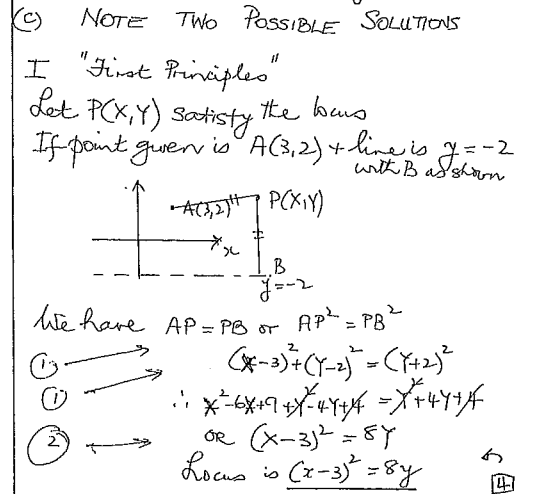 (c) NOTE TWO POSSIBLE SOLUTIONS
I "First Principles"
Let P(X,Y) satisfy the locus
If point given is A(3,2) + line is y = -2
with B as shown
A(3,2) P(X,Y)
x
B
y = -2
We have AP = PB or AP² = PB²
① (X-3)²+(Y-2)² = (Y+2)²
① ∴ X²-6X+9+Y²-4Y+4 = Y²+4Y+4
② OR (X-3)² = 8Y
Locus is (x-3)² = 8y
4